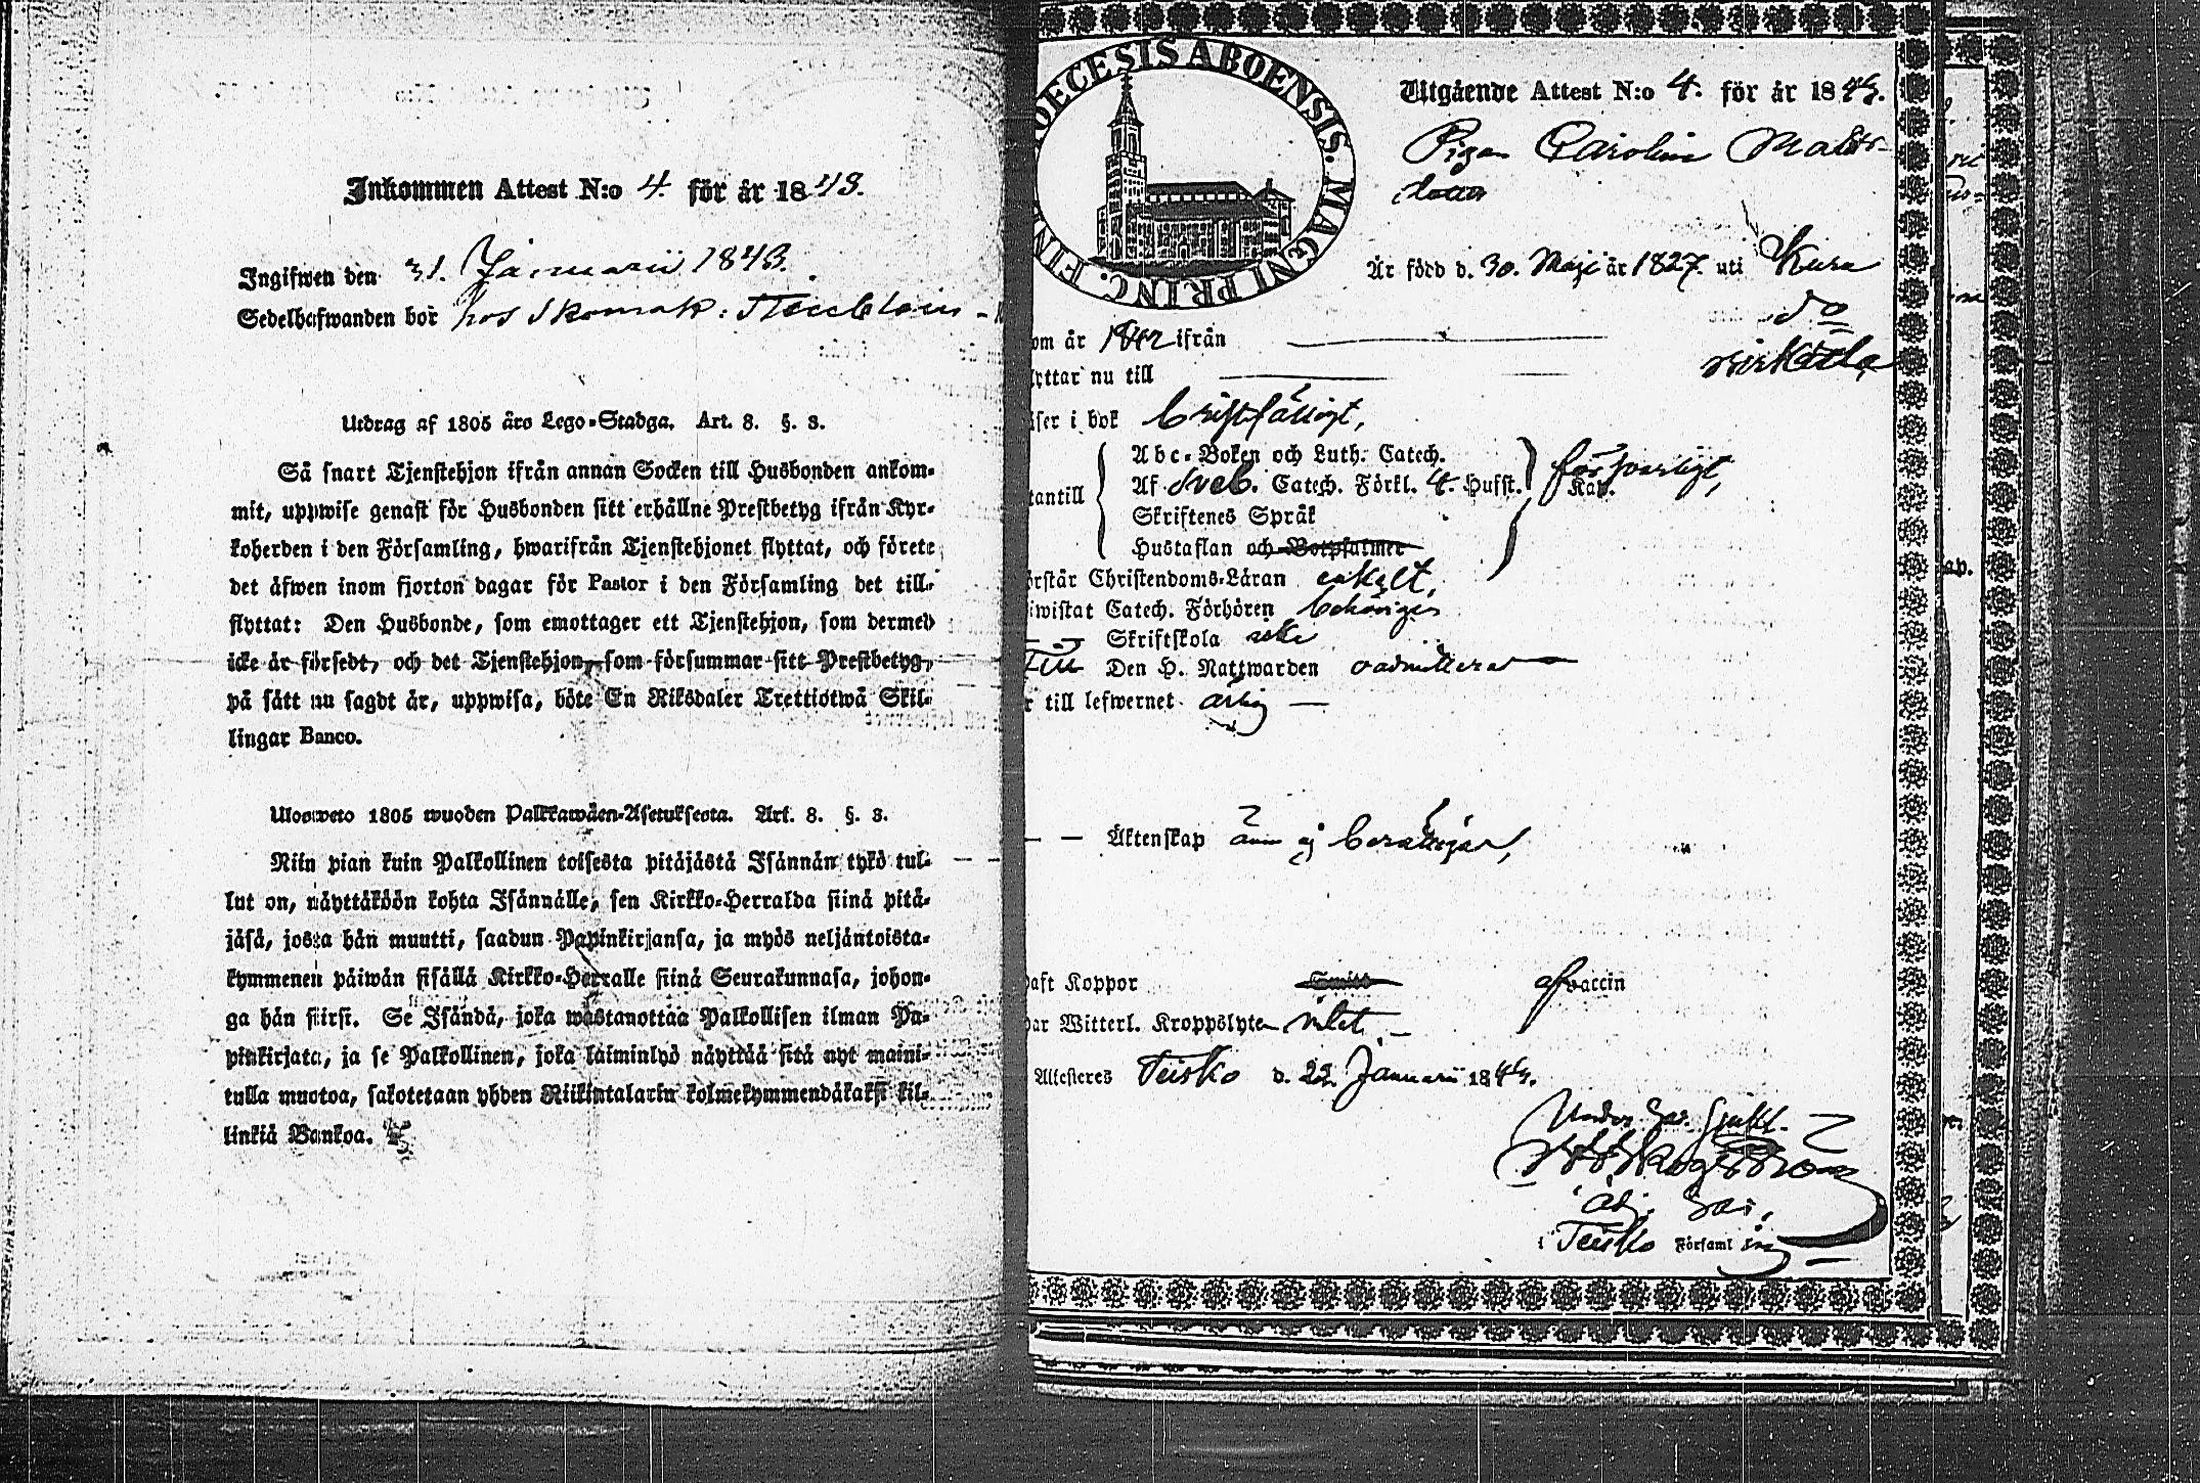 Inkommen Attest N:o 4. för år 1843.
Ingifwen den 31. Januarii 1843.
Sedelhafwanden bor hos Skomak:
Utdrag af 1805 års Lego-Stadga. Art. 8. §. 3.
Så snart Tjenstehjon ifrån annan Socken till Husbonden ankom-
mit, uppwise genast för Husbonden sitt erhållne Prestbetyg ifrån Kyr-
koherden i den Församling, hwarifrån Tjenstehjonet flyttat, och förete
det äfwen inom fjorton dagar för Pastor i den Församling det till-
flyttat: Den Husbonde, som emottager ett Tjenstehjon, som dermed
icke är försedt, och det Tjenstehjon, som försummar sitt Prestbetyg,
på sätt nu sagdt är, uppwisa, böte En Riksdaler Trettiotwå Skil-
lingar Banco.
Ulosweto 1805 wuoden Palkkawäen-Asetuksesta. Art. 8. §. 3.
Niin pian kuin Palkollinen toisesta pitäjästä Isännän tykö tul-
lut on, näyttäköön kohta Isännälle, sen Kirkko-Herralda siinä pitä-
jäsä, josta hän muutti, saadun Papinkirjansa, ja myös neljäntoista-
kymmenen päiwän sisällä Kirkko-Herralle siinä Seurakunnasa, johon-
ga hän siirsi. Se Isändä, joka wastanottaa Palkollisen ilman Pa-
pinkirjata, ja se Palkollinen, joka laiminlyö näyttää sitä nyt maini-
tulla muotoa, sakotetaan yhden Riikintalarin kolmekymmendäkaksi kil-
linkiä Bankoa.
DIOECESIS ABOENSIS. MAGNI PRINC. FIN
Utgående Attest N:o 4. för år 1843.
Pigan Carolina Matts-
dotter
Är född d. 30. Maji år 1827. uti Kuru
do
om år 1842 ifrån
yttar nu till Birkkala
äser i bok
Abc-Boken och Luth. Catech.
tantill Af Sveb. Catech. Förkl. 4. Hufst. Kap. försvarligt,
Skriftenes Språk
Hustaflan och Botpsalmer
örstår Christendoms-Läran enkelt,
iwistat Catech. Förhören behörigen
Skriftskola icke
Till Den H. Nattwarden oadmitterad
r till lefwernet ärlig
Äktenskap ännu ej berättigad,
aft Koppor Smitt af vaccin
ar Witterl. Kroppslyte intet
Attesteres Teisko d. 22. Januarii 1843.
adj. Sac.
i Teisko Församling